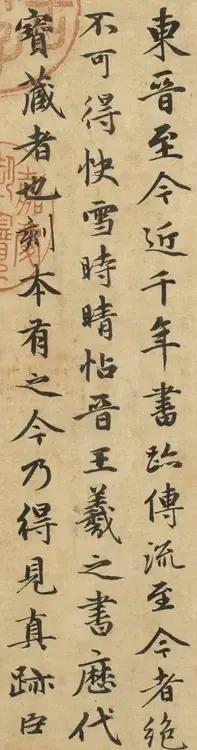 東晉至今近千年書跡傳流至今者絶
不可得快雪時晴帖晉王羲之書歷代
寶藏者也刻本有之今乃得見真跡臣